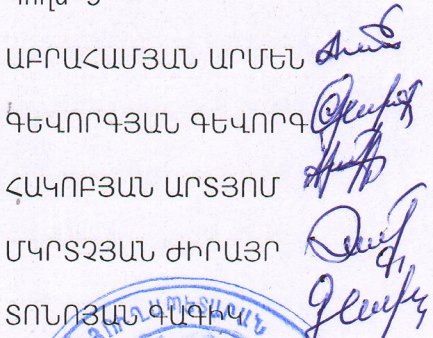 ԱԲՐԱՀԱՄՅԱՆ ԱՐՄԵՆ
ԳԵՎՈՐԳՅԱՆ ԳԵՎՈՐԳ
ՀԱԿՈԲՅԱՆ ԱՐՏՅՈՄ
ՄԿՐՏՉՅԱՆ ԺԻՐԱՅՐ
ՏՈՆՈՅԱՆ ԳԱԳԻԿ